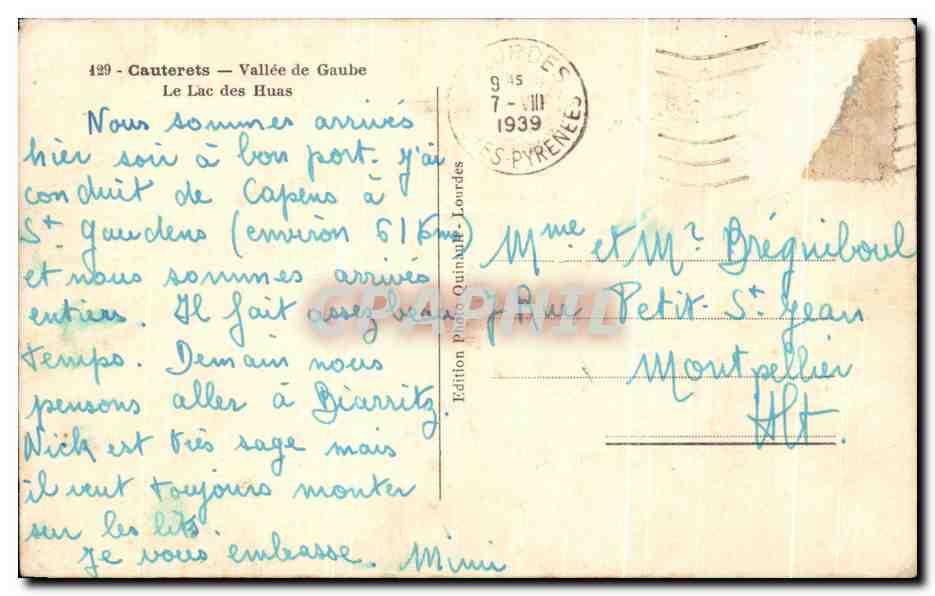 129 - Cauterets — Vallée de Gaube
Le Lac des Huas
Nous sommes arrivés
hier soir à bon port. J'ai
conduit de Capens à
St Gaudens (environ 61 Kms)
et nous sommes arrivés
entiers. Il fait assez beau
temps. Demain nous
pensons aller à Biarritz.
Nick est très sage mais
il veut toujours monter
sur les lits.
Je vous embrasse. Mimi
Edition Photo Quinault - Lourdes
LOURDES
9 45
7 - VIII
1939
ES-PYRENEES
Mme et Mr Bréguiboul
7 Rue Petit-St Jean
Montpellier
Hlt.
GRAPHIL